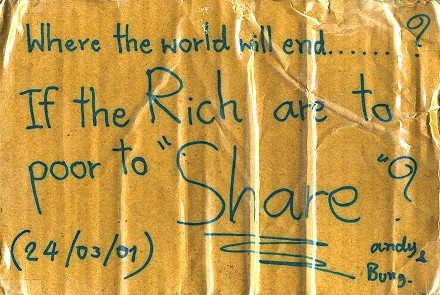 Where the world will end.......?
If the Rich are to
poor to "Share"?
(24/03/01)
andy &
Bung.